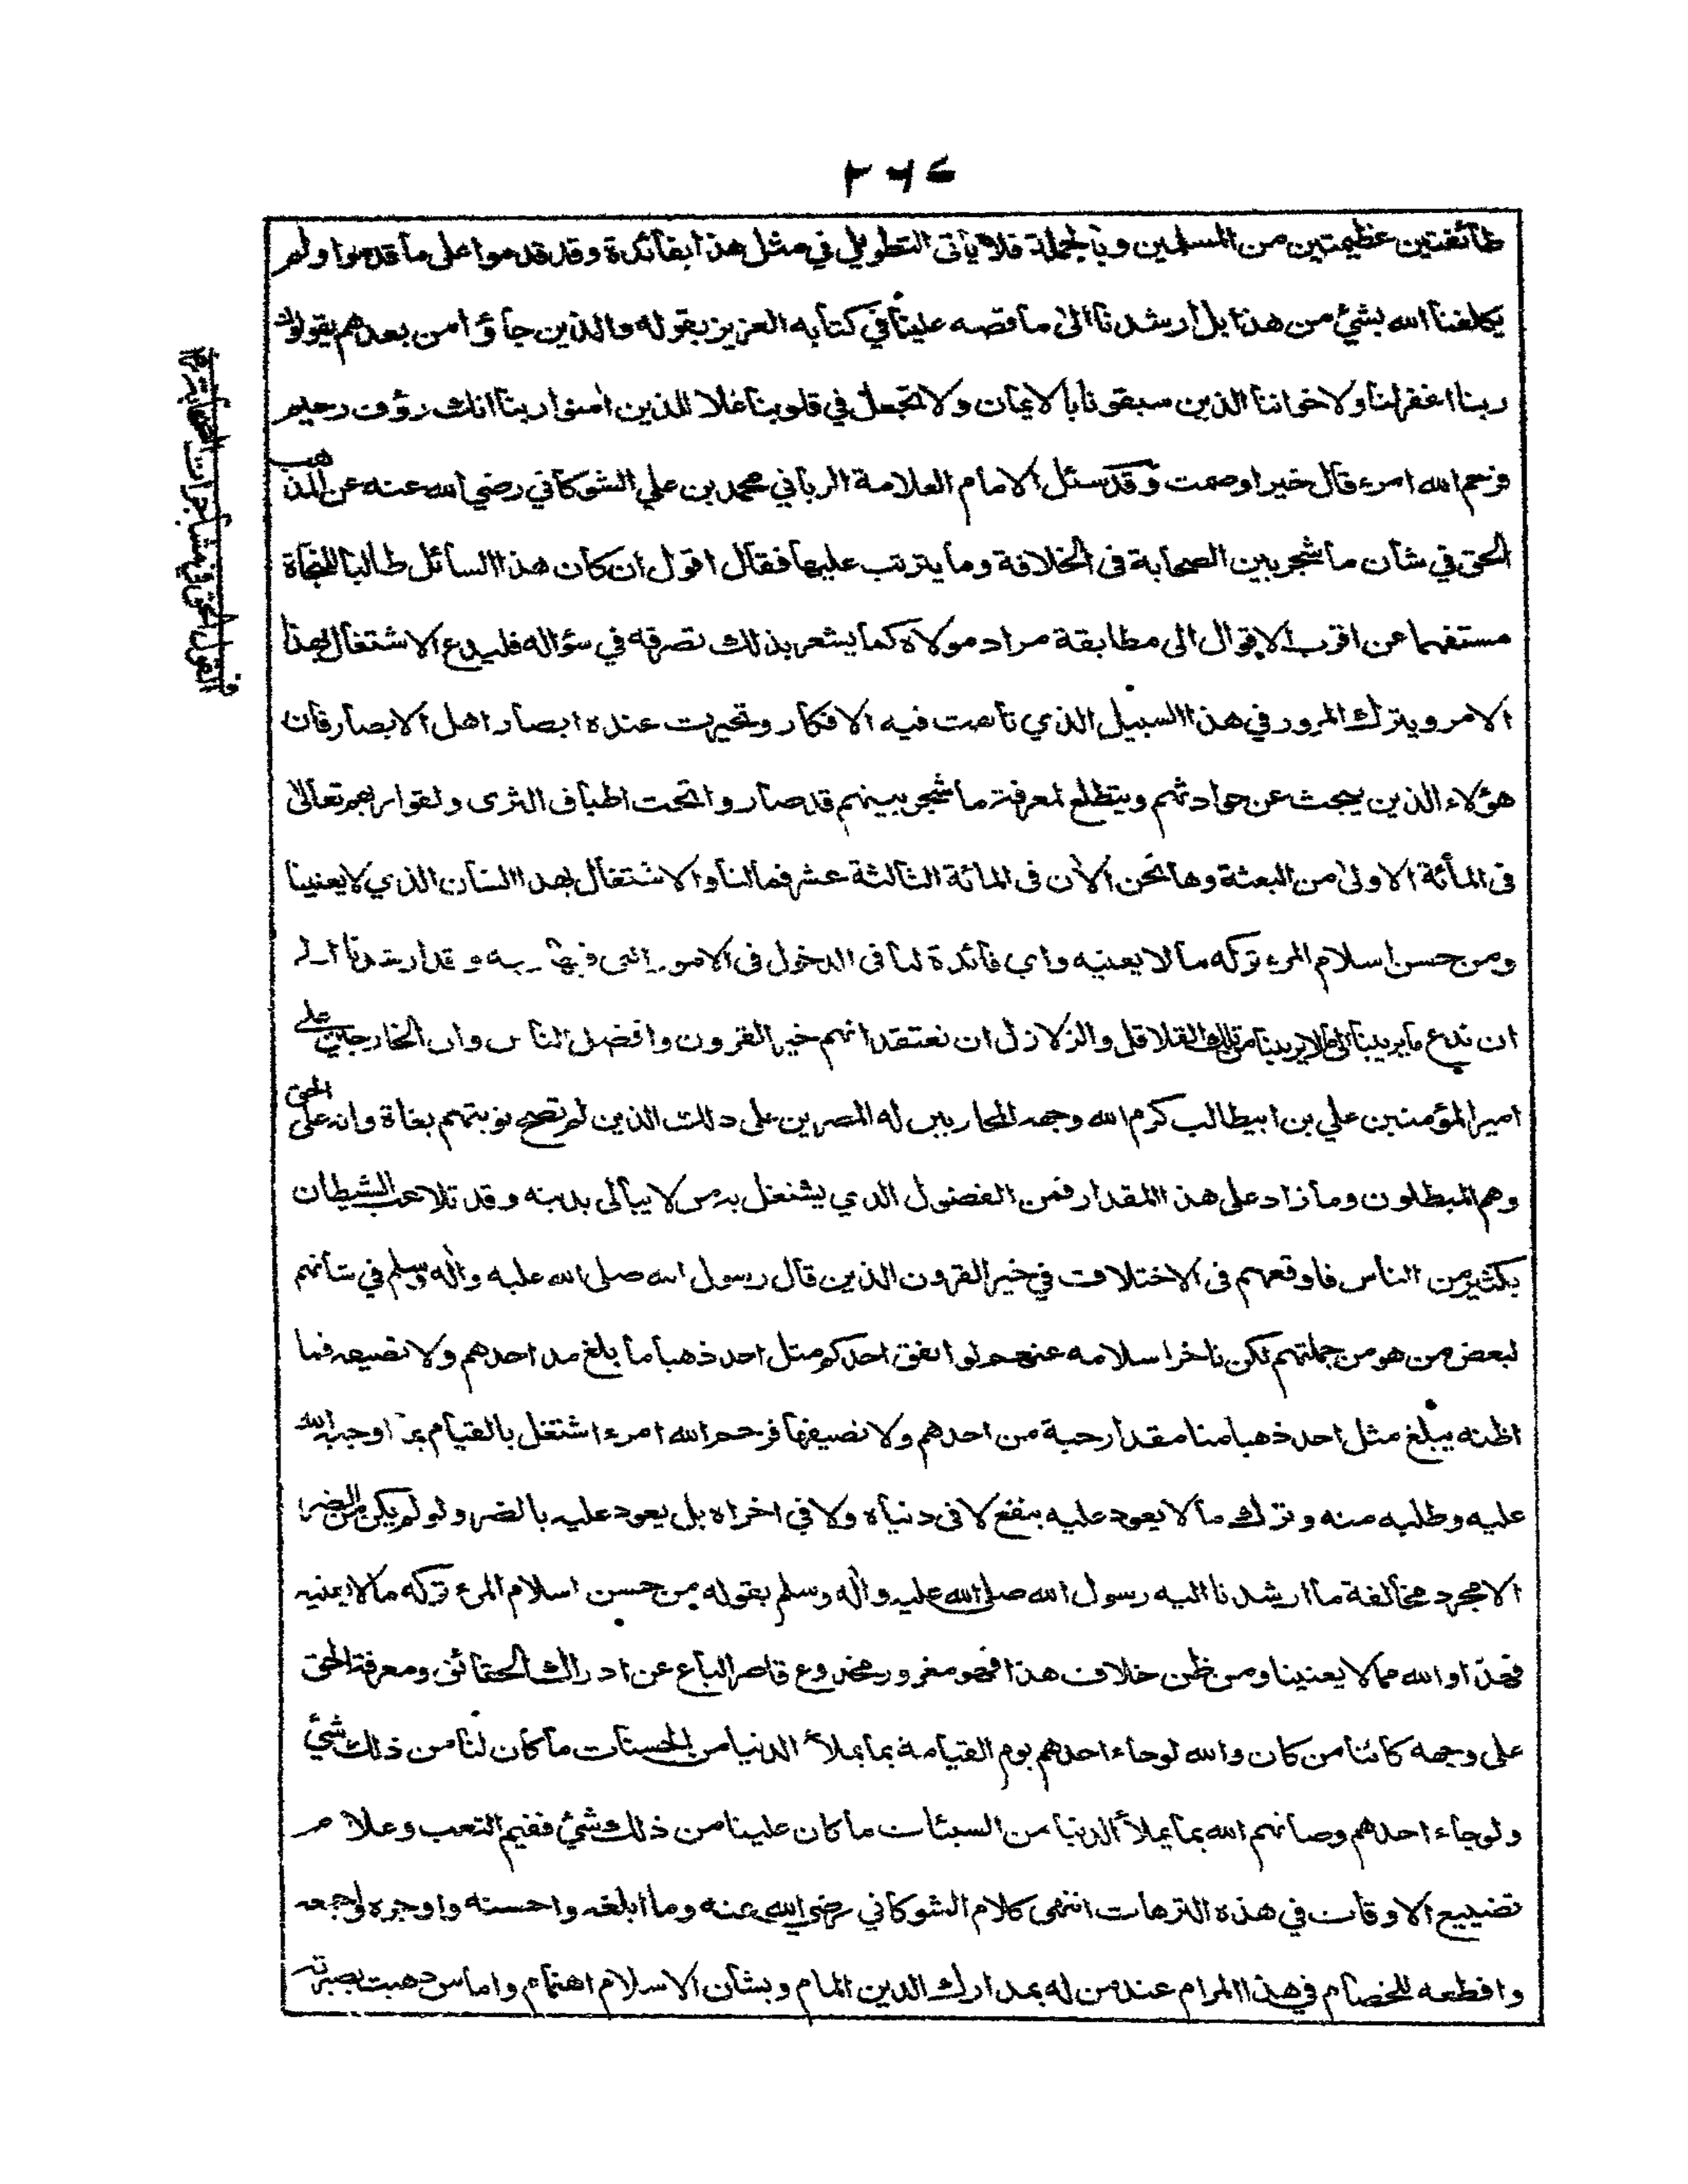 ٢٦٤
طائفتين عظيمتين من المسلمين وبالجملة فلا يأتى التطويل في مثل هذا بفائدة وقد قدموا على ما قدموا ولم
يكلفنا الله بشئ من هذا بل ارشدنا الى ما قصه علينا في كتابه العزيز بقوله والذين جاؤا من بعدهم يقولون
ربنا اغفر لنا ولاخواننا الذين سبقونا بالايمان ولا تجعل في قلوبنا غلا للذين امنوا ربنا انك رؤف رحيم
فرحم الله امرء قال خيرا او صمت وقد سئل الامام العلامة الرباني محمد بن علي الشوكاني رضي الله عنه عن المذهب
الحق في شان ما شجر بين الصحابة فى الخلافة وما يترتب عليها فقال اقول ان كان هذا السائل طالبا للنجاة
مستفهما عن اقرب الاقوال الى مطابقة مراد مولاه كما يشعر بذلك تصرفه في سؤاله فليدع الاشتغال بهذا
الامر ويترك المرور في هذا السبيل الذي تاهت فيه الافكار وتحيرت عنده ابصار اهل الابصار فان
هؤلاء الذين يبحث عن حوادثهم ويتطلع لمعرفة ما شجر بينهم قد صاروا تحت اطباف الثرى ولقوا ربهم تعالى
فى المائة الاولى من البعثة وها نحن الآن فى المائة الثالثة عشر فما لنا والاشتغال بهذا الشان الذي لا يعنينا
ومن حسن اسلام المرء تركه ما لا يعنيه واي فائدة لنا فى الدخول فى الامور التى فيها ريبه وقد ارشدنا الى
ان ندع ما يريبنا الى ما لا يريبنا من تلك القلاقل والزلازل ان نعتقد انهم خير القرون وافضل الناس وان الخارجين على
امير المؤمنين علي بن ابيطالب كرم الله وجهه المحاربين له المصرين على ذلك الذين لم تصح توبتهم بغاة وانه على الحق
وهم المبطلون وما زاد على هذا المقدار فمن الفضول الذي يشتغل به من لا يبالى بدينه وقد تلاعب الشيطان
بكثير من الناس فاوقعهم فى الاختلاف في خير القرون الذين قال رسول الله صلى الله عليه وآله وسلم في شأنهم
لبعض من هو من جملتهم لكن تاخر اسلامه عنهم لو انفق احدكم مثل احد ذهبا ما بلغ مد احدهم ولا نصيفه فما
اظنه يبلغ مثل احد ذهبا منا مقدار حبة من احدهم ولا نصيفها فرحم الله امرء اشتغل بالقيام بما اوجبه الله
عليه وطلبه منه وترك ما لا يعود عليه بنفع لا فى دنياه ولا في اخراه بل يعود عليه بالضر ولو لم يكن من الضر
الا مجرد مخالفة ما ارشدنا اليه رسول الله صلى الله عليه وآله وسلم بقوله من حسن اسلام المرء تركه ما لا يعنيه
فهذا والله مما لا يعنينا ومن ظن خلاف هذا فهو مغرور مخدوع قاصر الباع عن ادراك الحقائق ومعرفة الحق
على وجهه كائنا من كان والله لو جاء احدهم يوم القيامة بما يملأ الدنيا من الحسنات ما كان لنا من ذلك شئ
ولو جاء احدهم وصانهم الله بما يملأ الدنيا من السيئات ما كان علينا من ذلك شئ ففيم التعب وعلام
تضييع الاوقات في هذه الترهات انتهى كلام الشوكاني رضي الله عنه وما ابلغه واحسنه واوجزه واجمعه
واقطعه للخصام في هذا المرام عند من له بمدارك الدين المام وبشان الاسلام اهتمام واما من ذهبت بصيرته
القول الحق في مشاجرات الصحابة